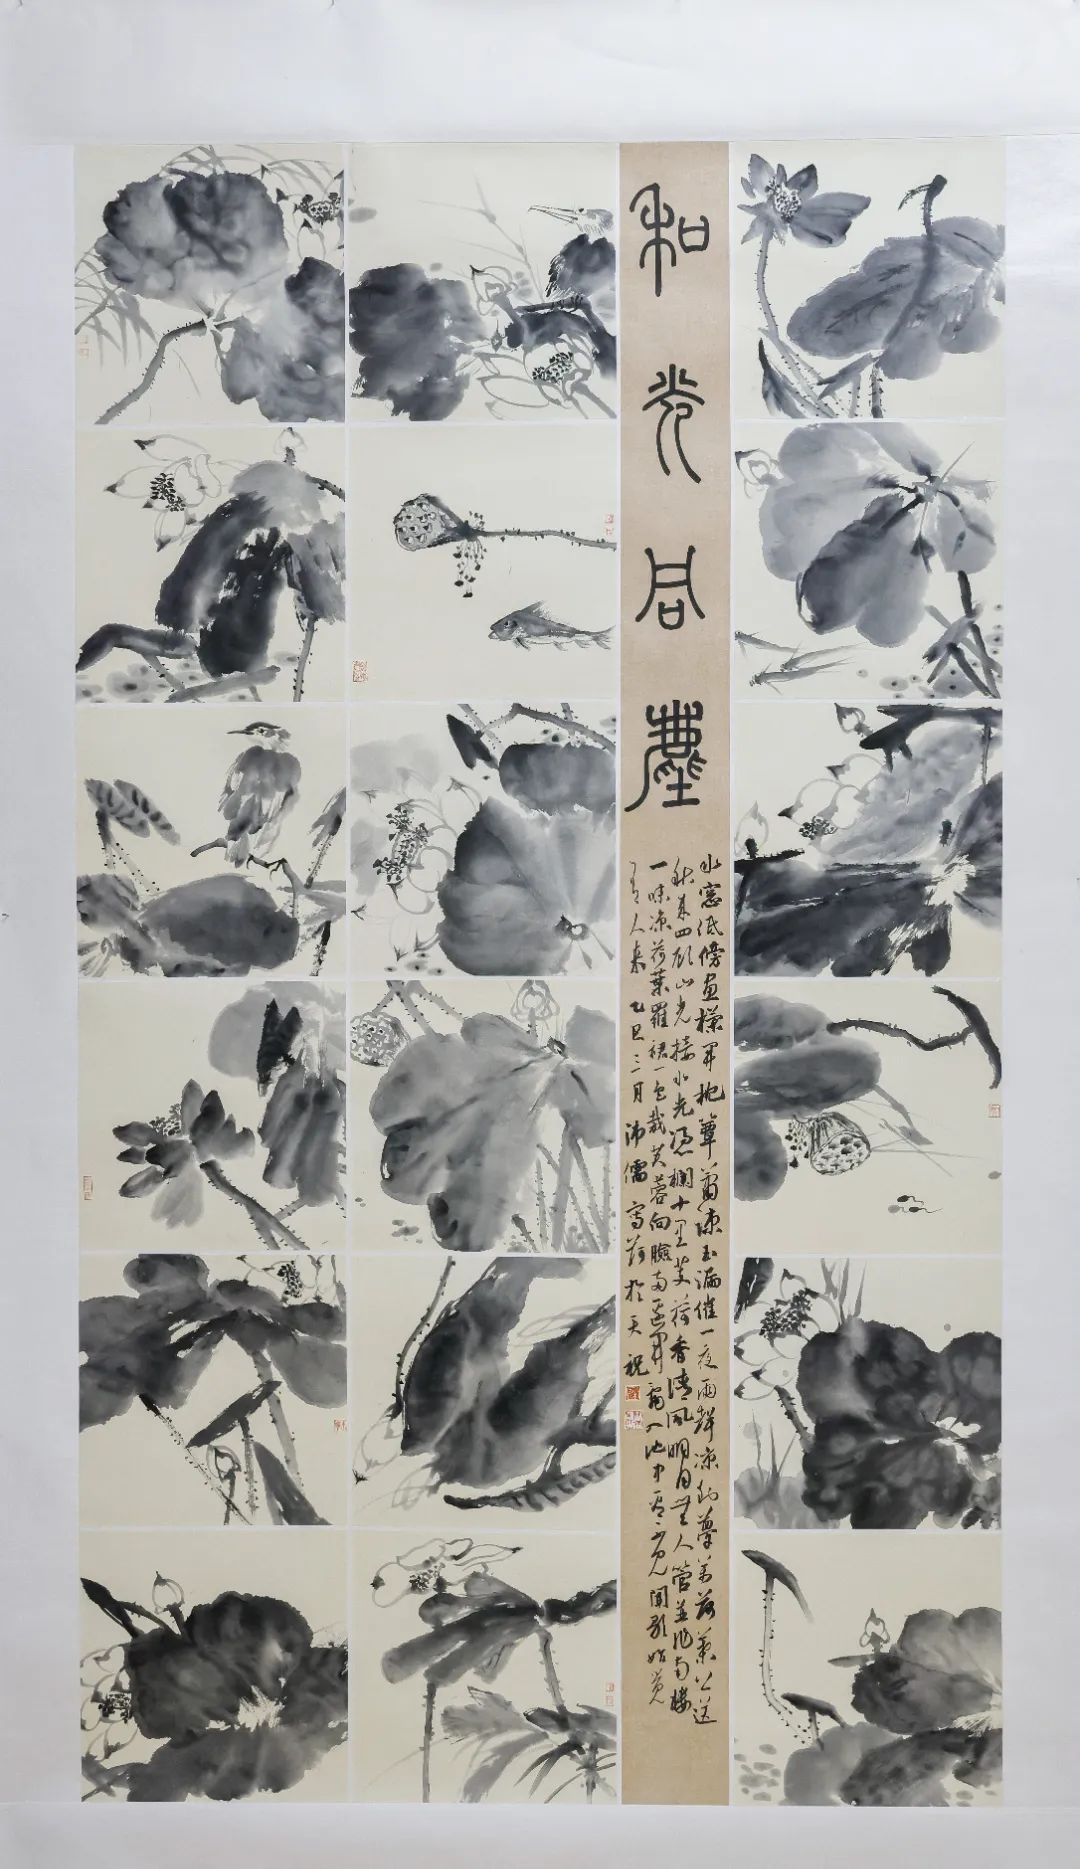 和光同塵
水窻低傍畫欄開枕簟蕭疎玉漏催一夜雨聲凉到夢萬荷葉上送
秋來四顧山光接水光凭欄十里芰荷香清風明月無人管並作南樓
一味凉荷葉羅裙一色裁芙蓉向臉兩邊開亂入池中看不見聞歌始覺
有人來 乙巳三月沛儒寫荷於天祝